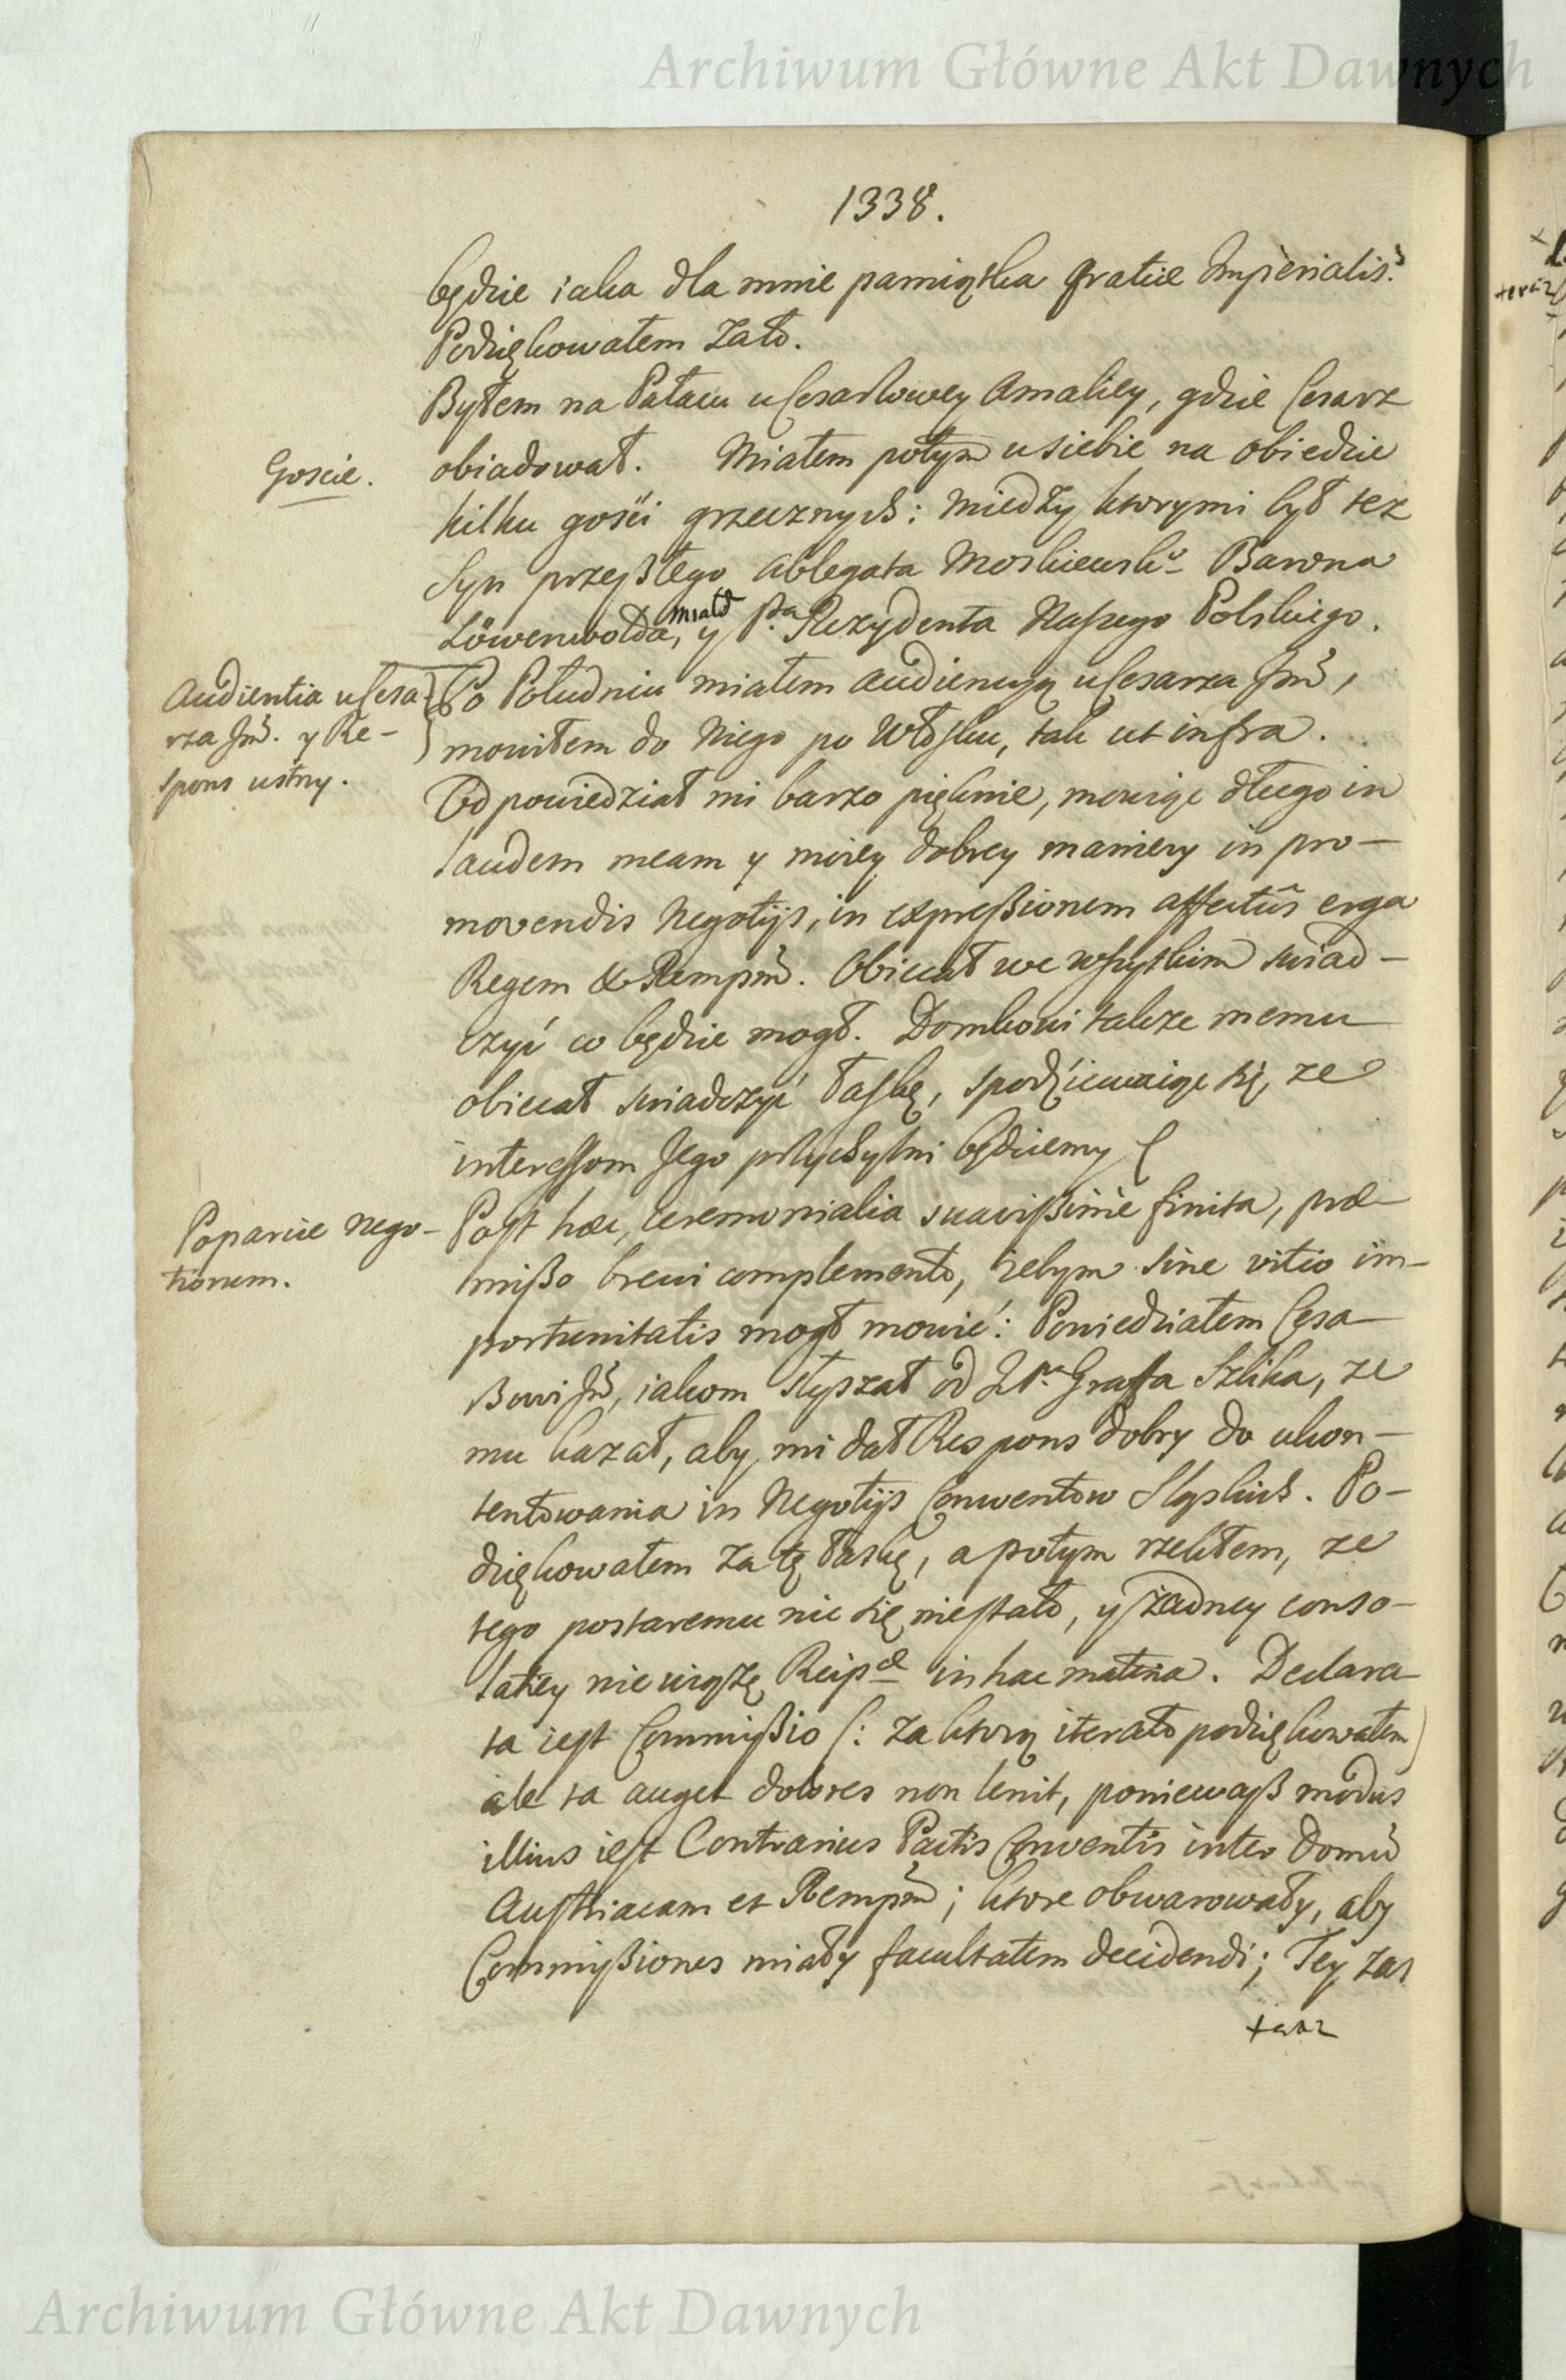 Archiwum Główne Akt Dawnych
1338.
będzie iaka dla mnie pamiątka gratiæ Imperialis.
Podziękowałem zato.
Byłem na Pałacu u Cesarzowey Amaliey, gdzie Cesarz
Goscie.
obiadował. Miałem potym u siebie na obiedzie
kilku gości grzecznych: miedzy ktorymi był tez
Syn przeszłego Ablegata Moskiewskᵒ Barona
Löwenwolda, miałᵈ y Pᵃ Rezydenta Naszego Polskiego.
Audientia u Cesa-
rza Jmᶜⁱ. y Re-
spons ustny.
Po Południu miałem audiencyą u Cesarza Jmᶜⁱ,
mowiłem do Niego po Włosku, tak ut infra.
Odpowiedział mi barzo pięknie, mowiąc długo in
laudem meam y moiey dobrey maniery in pro-
movendis Negotijs, in expreßionem affectûs erga
Regem & Rempm̃. Obiecał we wszytkim swiad-
czyć co będzie mogł. Domkowi takze memu
obiecał swiadczyć łaskę, spodźiewaiąc się, ze
interessom Jego przychylni będziemy
Poparcie nego-
tiorum.
Post hæc, ceremonialia suavißimè finita, præ-
mißo brevi complemento, żebym sine vitio im-
portunitatis mogł mowić: Powiedziałem Cesa-
rzowi Jmᶜⁱ, iakom słyszał od Pᵃ Grafa Szlika, ze
mu kazał, aby mi dał Respons dobry do ukon-
tentowania in Negotijs Conwentow Sląskich. Po-
dziękowałem za tę łaskę, a potym rzekłem, ze
tego postaremu nic się niestało, y żadney conso-
latiey nie wiozę Reipᶜæ in hac materia. Declara-
ta iest Commißio (: za ktorą iterato podziękowałem)
ale ta auget dolores non lenit, ponieważ modus
illius iest Contrarius Pactis Conventis inter Domũ
Austriacam et Rempm̃; ktore obwarowały, aby
Commißiones miały facultatem decidendi; Tey zas
teraz
Archiwum Główne Akt Dawnych